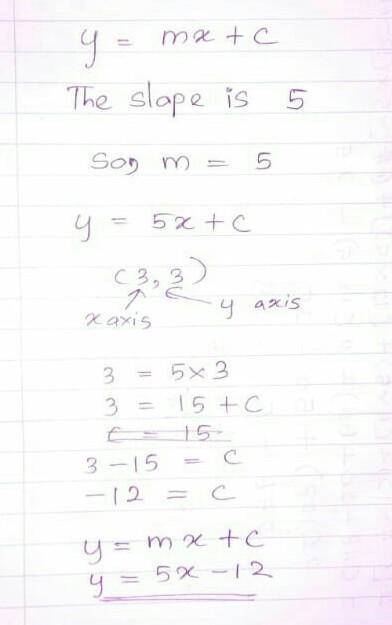 y = mx + c
The slope is 5
So, m = 5
y = 5x + c
(3, 3)
x axis
y axis
3 = 5×3
3 = 15 + c
c = 15
3 - 15 = c
-12 = c
y = mx + c
y = 5x - 12